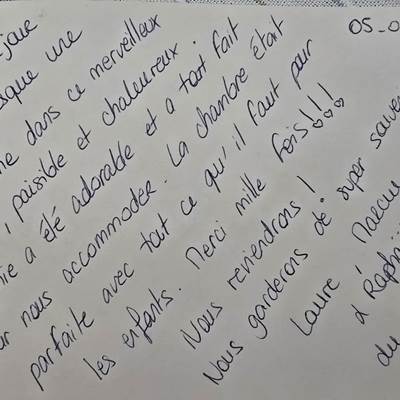 05-0
sque une
ne dans ce merveilleux
, paisible et chaleureux.
ie a été adorable et a tout fait
ur nous accommoder. La chambre était
parfaite avec tout ce qu'il faut pour
les enfants. Merci mille fois!!!
Nous reviendrons!
Nous garderons de super souve
Laure,
à Raph
du